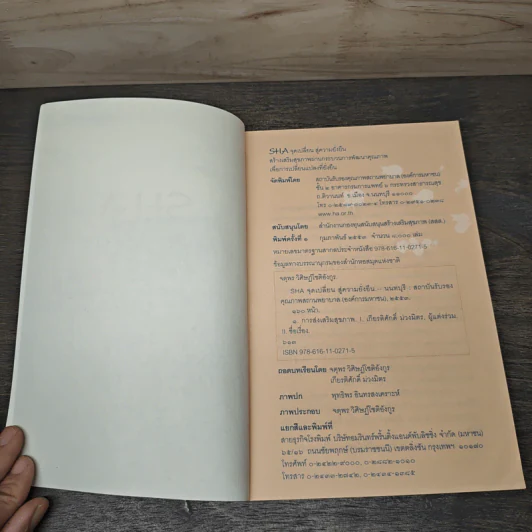 SHA จุดเปลี่ยน สู่ความยั่งยืน
สร้างเสริมสุขภาพผ่านกระบวนการพัฒนาคุณภาพ
เพื่อการเปลี่ยนแปลงที่ยั่งยืน
จัดพิมพ์โดย สถาบันรับรองคุณภาพสถานพยาบาล (องค์การมหาชน)
ชั้น ๒ อาคารกรมการแพทย์ ๖ กระทรวงสาธารณสุข
ถ.ติวานนท์ อ.เมือง จ.นนทบุรี ๑๑๐๐๐
www.ha.or.th
สนับสนุนโดย สำนักงานกองทุนสนับสนุนสร้างเสริมสุขภาพ (สสส.)
พิมพ์ครั้งที่ ๑ กุมภาพันธ์ ๒๕๕๓ จำนวน เล่ม
หมายเลขมาตรฐานสากลประจำหนังสือ 978-616-11-0271-5
ข้อมูลทางบรรณานุกรมของสำนักหอสมุดแห่งชาติ
จตุพร วิศิษฏ์โชติอังกูร
SHA จุดเปลี่ยน สู่ความยั่งยืน.- นนทบุรี : สถาบันรับรอง
คุณภาพสถานพยาบาล (องค์การมหาชน), ๒๕๕๓.
๑๖๐ หน้า.
๑. การส่งเสริมสุขภาพ. I. เกียรติศักดิ์ ม่วงมิตร, ผู้แต่งร่วม.
II. ชื่อเรื่อง.
๖๑๓
ISBN 978-616-11-0271-5
ถอดบทเรียนโดย จตุพร วิศิษฏ์โชติอังกูร
เกียรติศักดิ์ ม่วงมิตร
ภาพปก พุทธิพร อินทรสงเคราะห์
ภาพประกอบ จตุพร วิศิษฏ์โชติอังกูร
แยกสีและพิมพ์ที่
สายธุรกิจโรงพิมพ์ บริษัทอมรินทร์พริ้นติ้งแอนด์พับลิชชิ่ง จำกัด (มหาชน)
๖๕/๑๖ ถนนชัยพฤกษ์ (บรมราชชนนี) เขตตลิ่งชัน กรุงเทพฯ ๑๐๑๗๐
โทรศัพท์ ๐-๒๔๒๒-๙๐๐๐, ๐-๒๘๘๒-๑๐๑๐
โทรสาร ๐-๒๔๓๓-๒๗๔๒, ๐-๒๔๓๔-๑๓๘๕